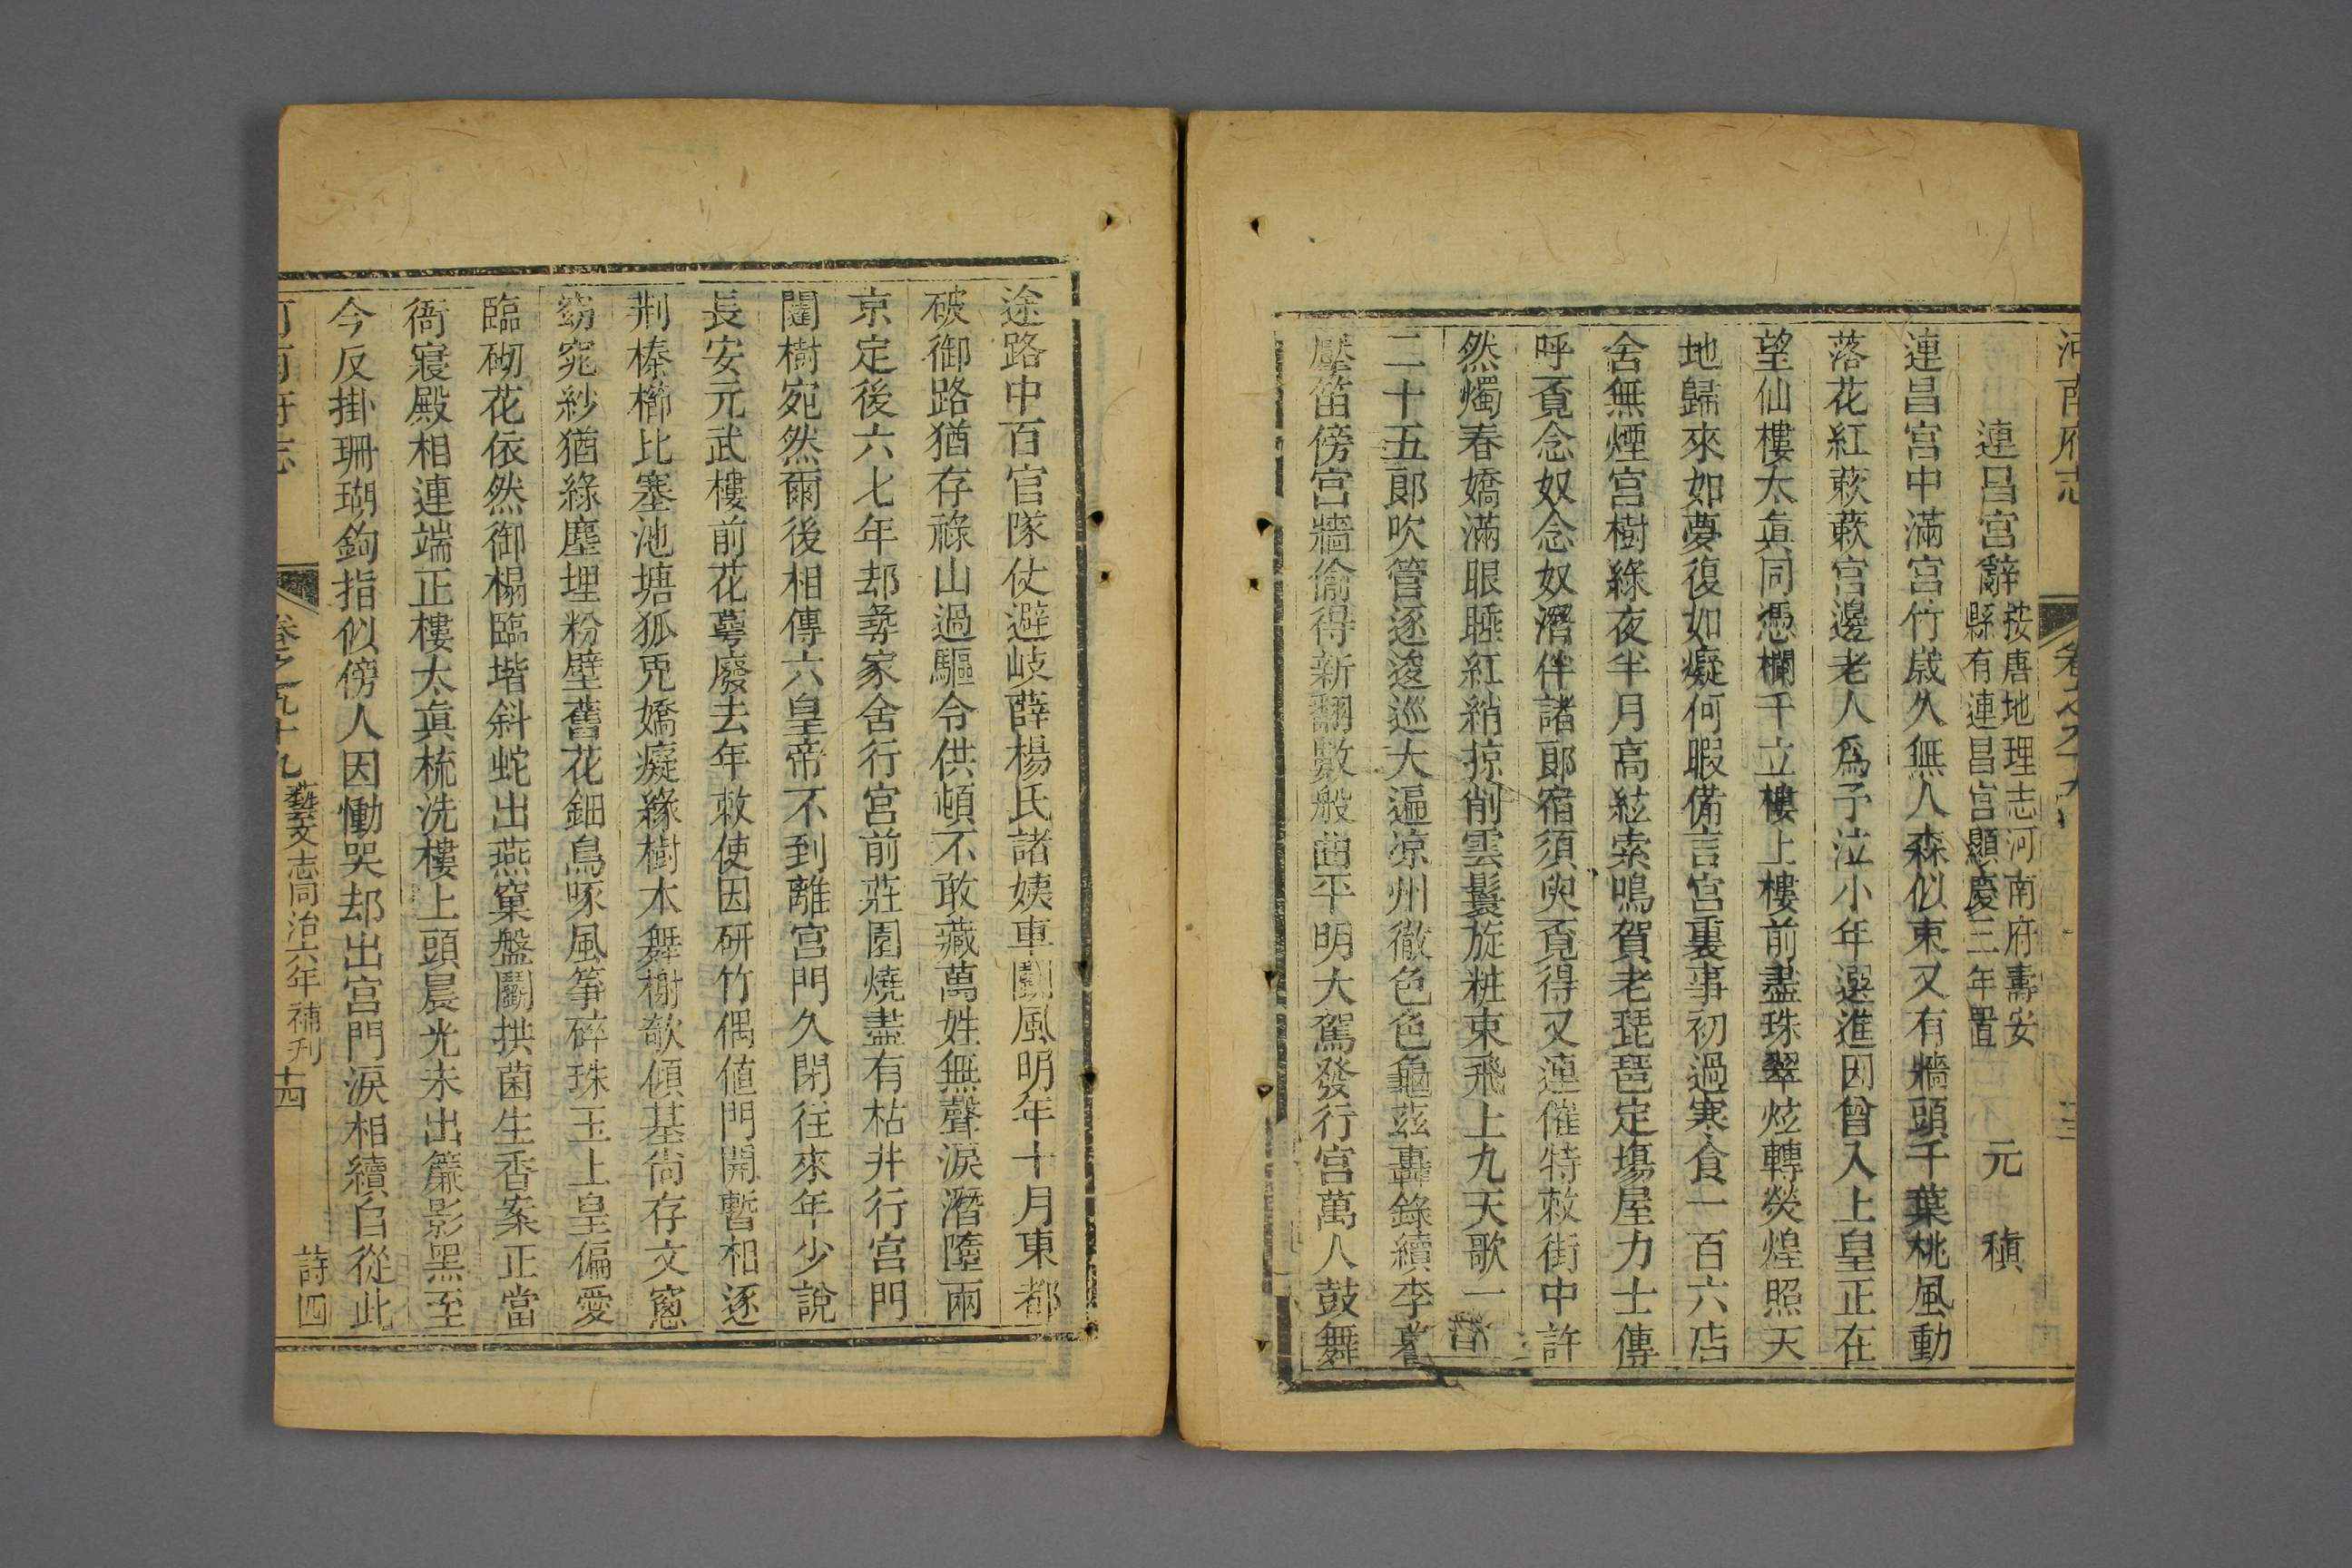 河南府志
連昌宮辭 按唐地理志河南府壽安 縣有連昌宮顯慶三年置 元 稹
連昌宮中滿宮竹歲久無人森似束又有牆頭千葉桃風動
落花紅蔌蔌宮邊老人爲予泣小年選進因曾入上皇正在
望仙樓太眞同憑欄干立樓上樓前盡珠翠炫轉熒煌照天
地歸來如夢復如癡何暇備言宮裏事初過寒食一百六店
舍無煙宮樹綠夜半月高絃索鳴賀老琵琶定塲屋力士傳
呼覔念奴念奴潛伴諸郞宿須臾覔得又連催特敕街中許
然燭春嬌滿眼睡紅綃掠削雲鬟旋粧束飛上九天歌一
二十五郞吹管逐逡巡大遍凉州徹色色龜茲轟錄續李謩
壓笛傍宮牆偷得新翻數般曲平明大駕發行宮萬人鼓舞
途路中百官隊仗避岐薛楊氏諸姨車鬭風明年十月東都
破御路猶存祿山過驅令供頓不敢藏萬姓無聲淚潛墮兩
京定後六七年却尋家舍行宮前莊園燒盡有枯井行宮門
闥樹宛然爾後相傳六皇帝不到離宮門久閉往來年少說
長安元武樓前花萼廢去年敕使因硏竹偶値門開暫相逐
荆榛櫛比塞池塘狐兎嬌癡緣樹木舞榭欹傾基尙存文窻
窈窕紗猶綠塵埋粉壁舊花鈿鳥啄風箏碎珠玉上皇偏愛
臨砌花依然御榻臨堦斜蛇出燕窠盤鬭拱菌生香案正當
衙寢殿相連端正樓太眞梳洗樓上頭晨光未出簾影黑至
今反掛珊瑚鉤指似傍人因慟哭却出宮門淚相續自從此
河南府志 卷之九十九 藝文志同治六年補刊 十四 詩四